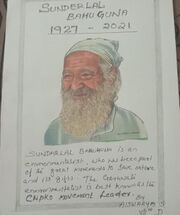 SUNDERLAL
BAHUGUNA
1927 - 2021
SUNDARLAL BAHUGUNA IS an
environmentalist, who has been part of
the great movements to save nature
and its gifts. The Garhwali
environmentalist is best known as the
CHIPKO MOVEMENT Leader.
By
AISWARYA S